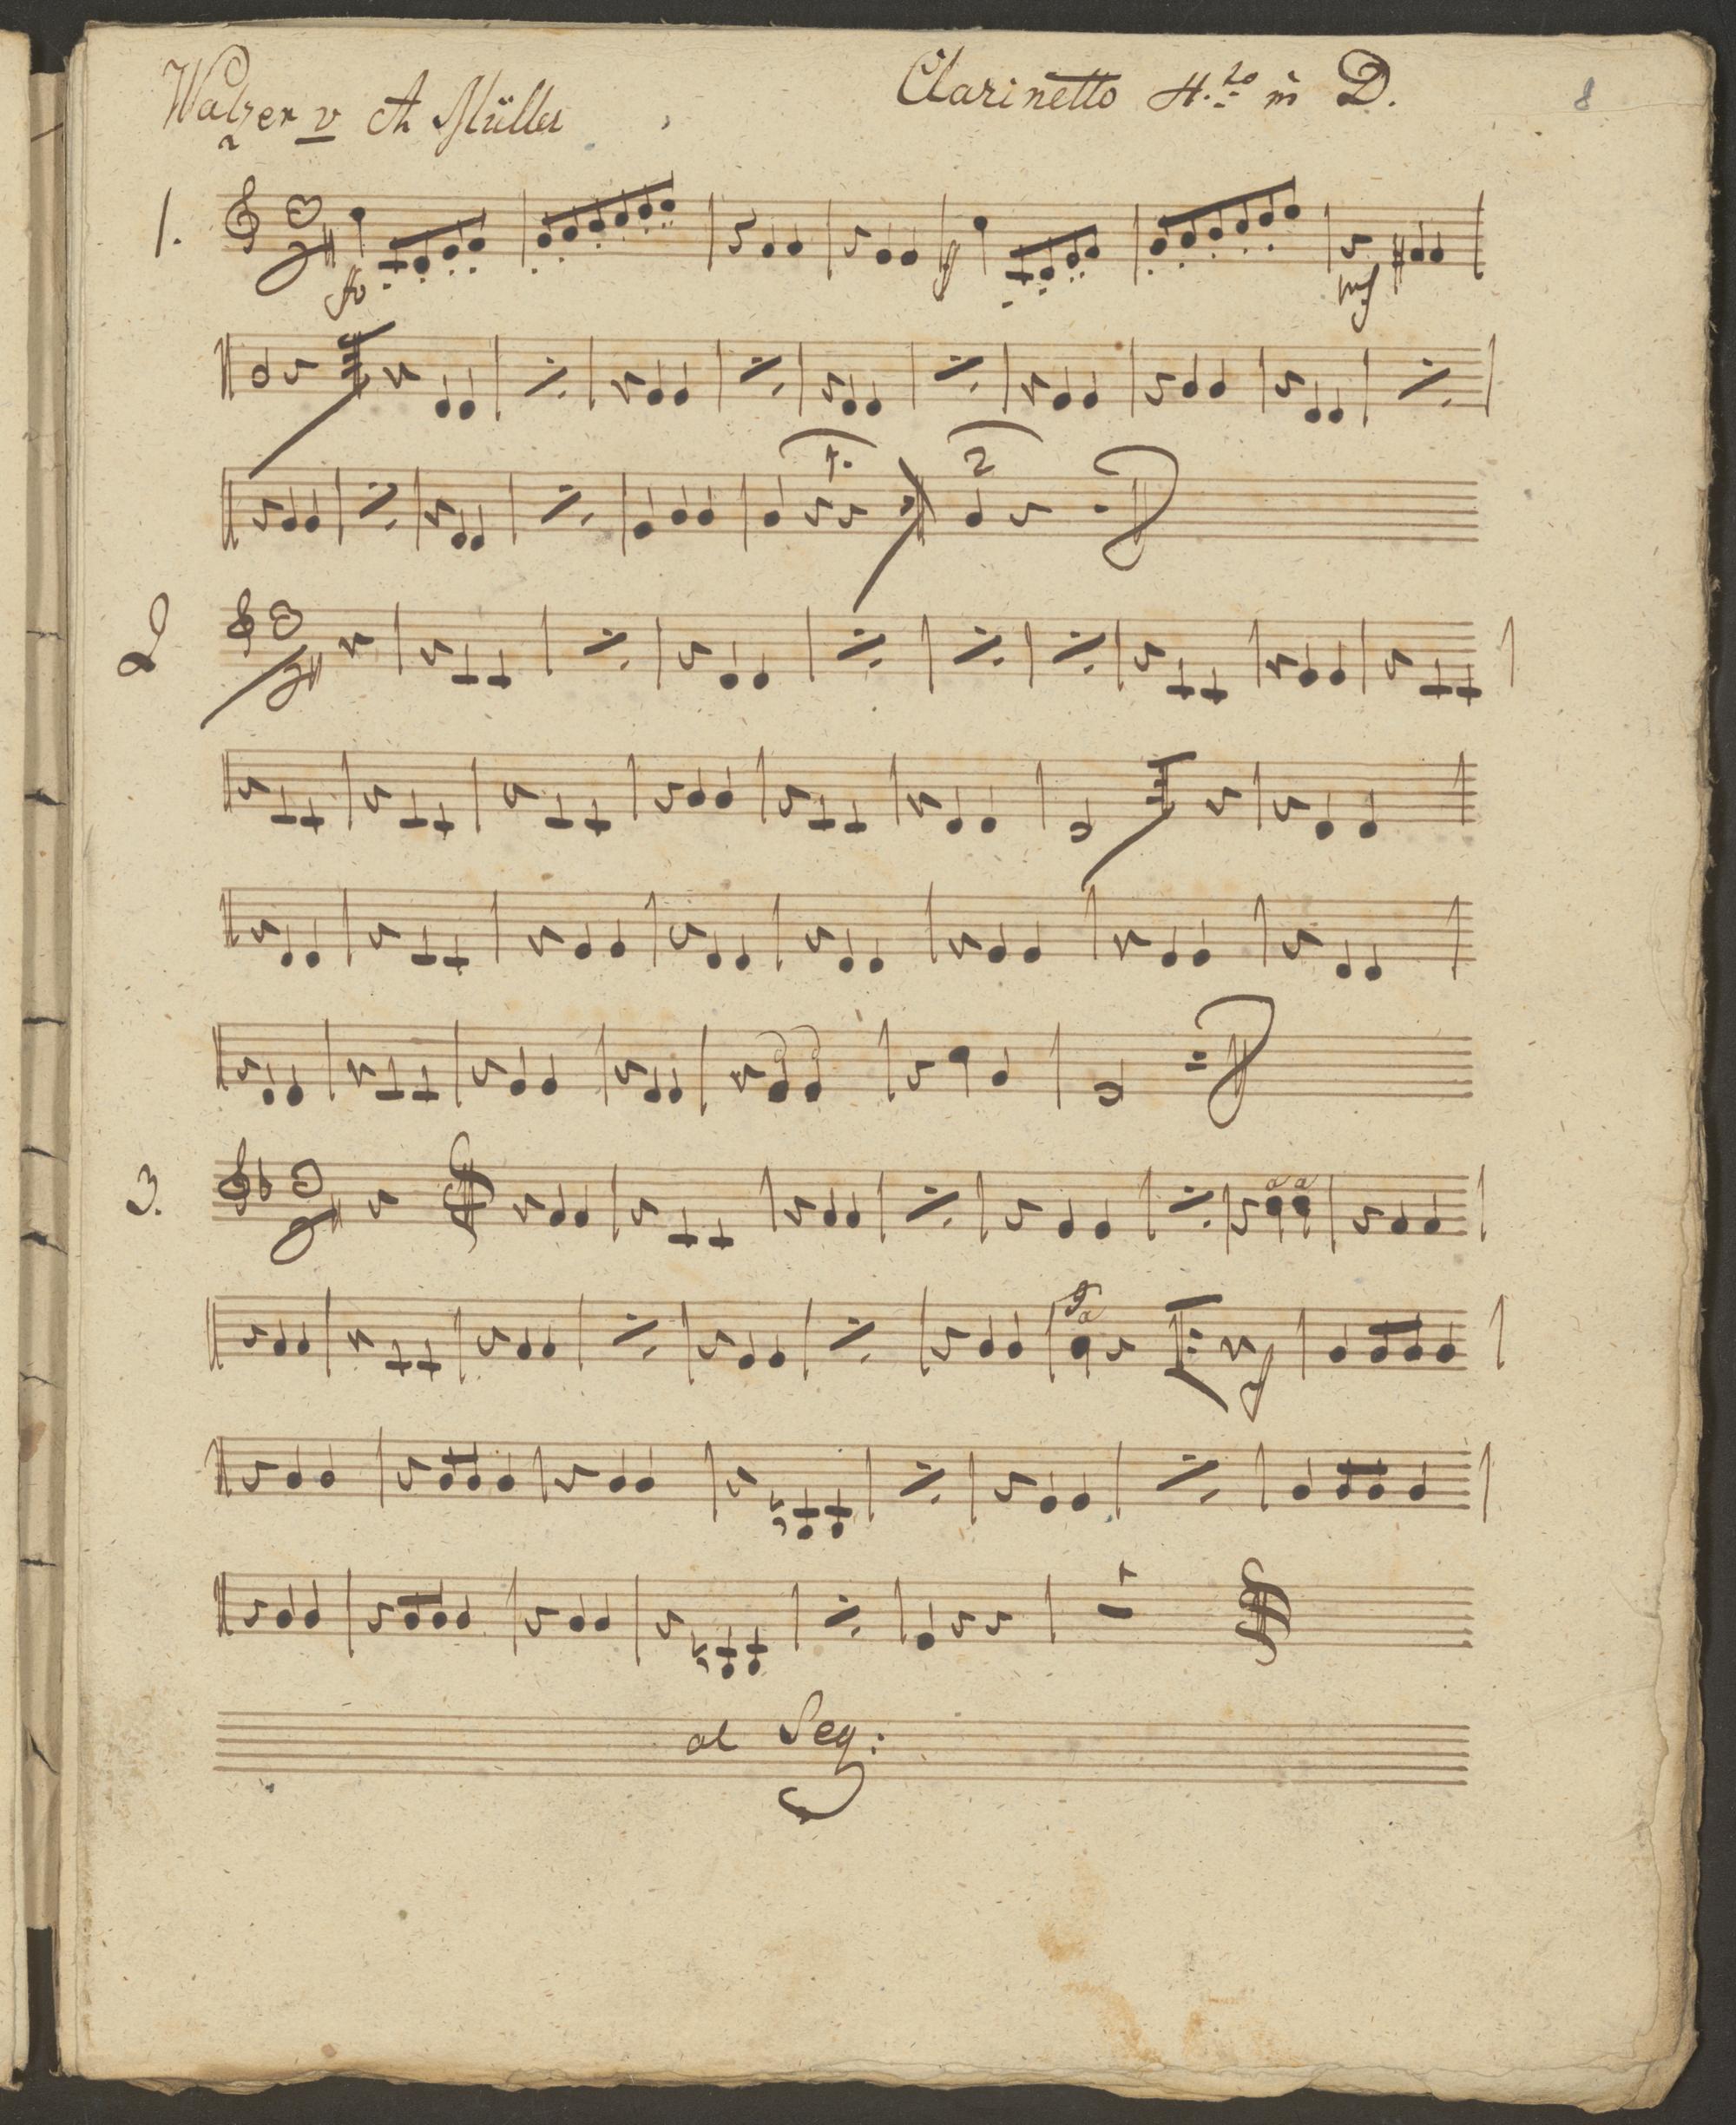 Walzer v A Müller
Clarinetto II.do in D.
8
1.
fo
mf
1.
2
2
3.
al Seg: